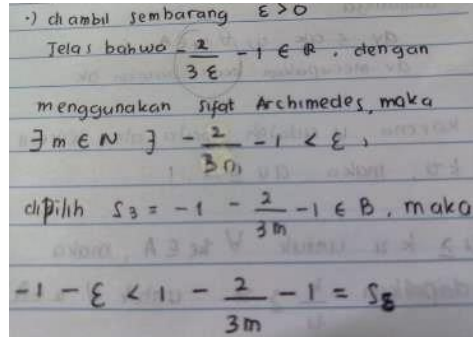 ·) diambil sembarang ε > 0
Jelas bahwa - 2/3ε - 1 ∈ R , dengan
menggunakan sifat Archimedes, maka
∃ m ∈ N ∋ - 2/3m - 1 < ε ,
dipilih S₃ = -1 - 2/3m - 1 ∈ B , maka
-1 - ε < 1 - 2/3m - 1 = Sε